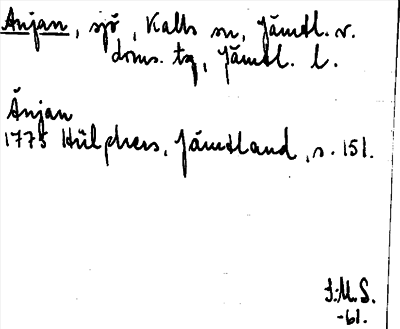 Anjan, sjö, Kalls sn, Jämtl. v.
doms. tg, Jämtl. l.
Ånjan
1775 Hülphers, Jämtland, s. 151.
I.M.S.
-61.